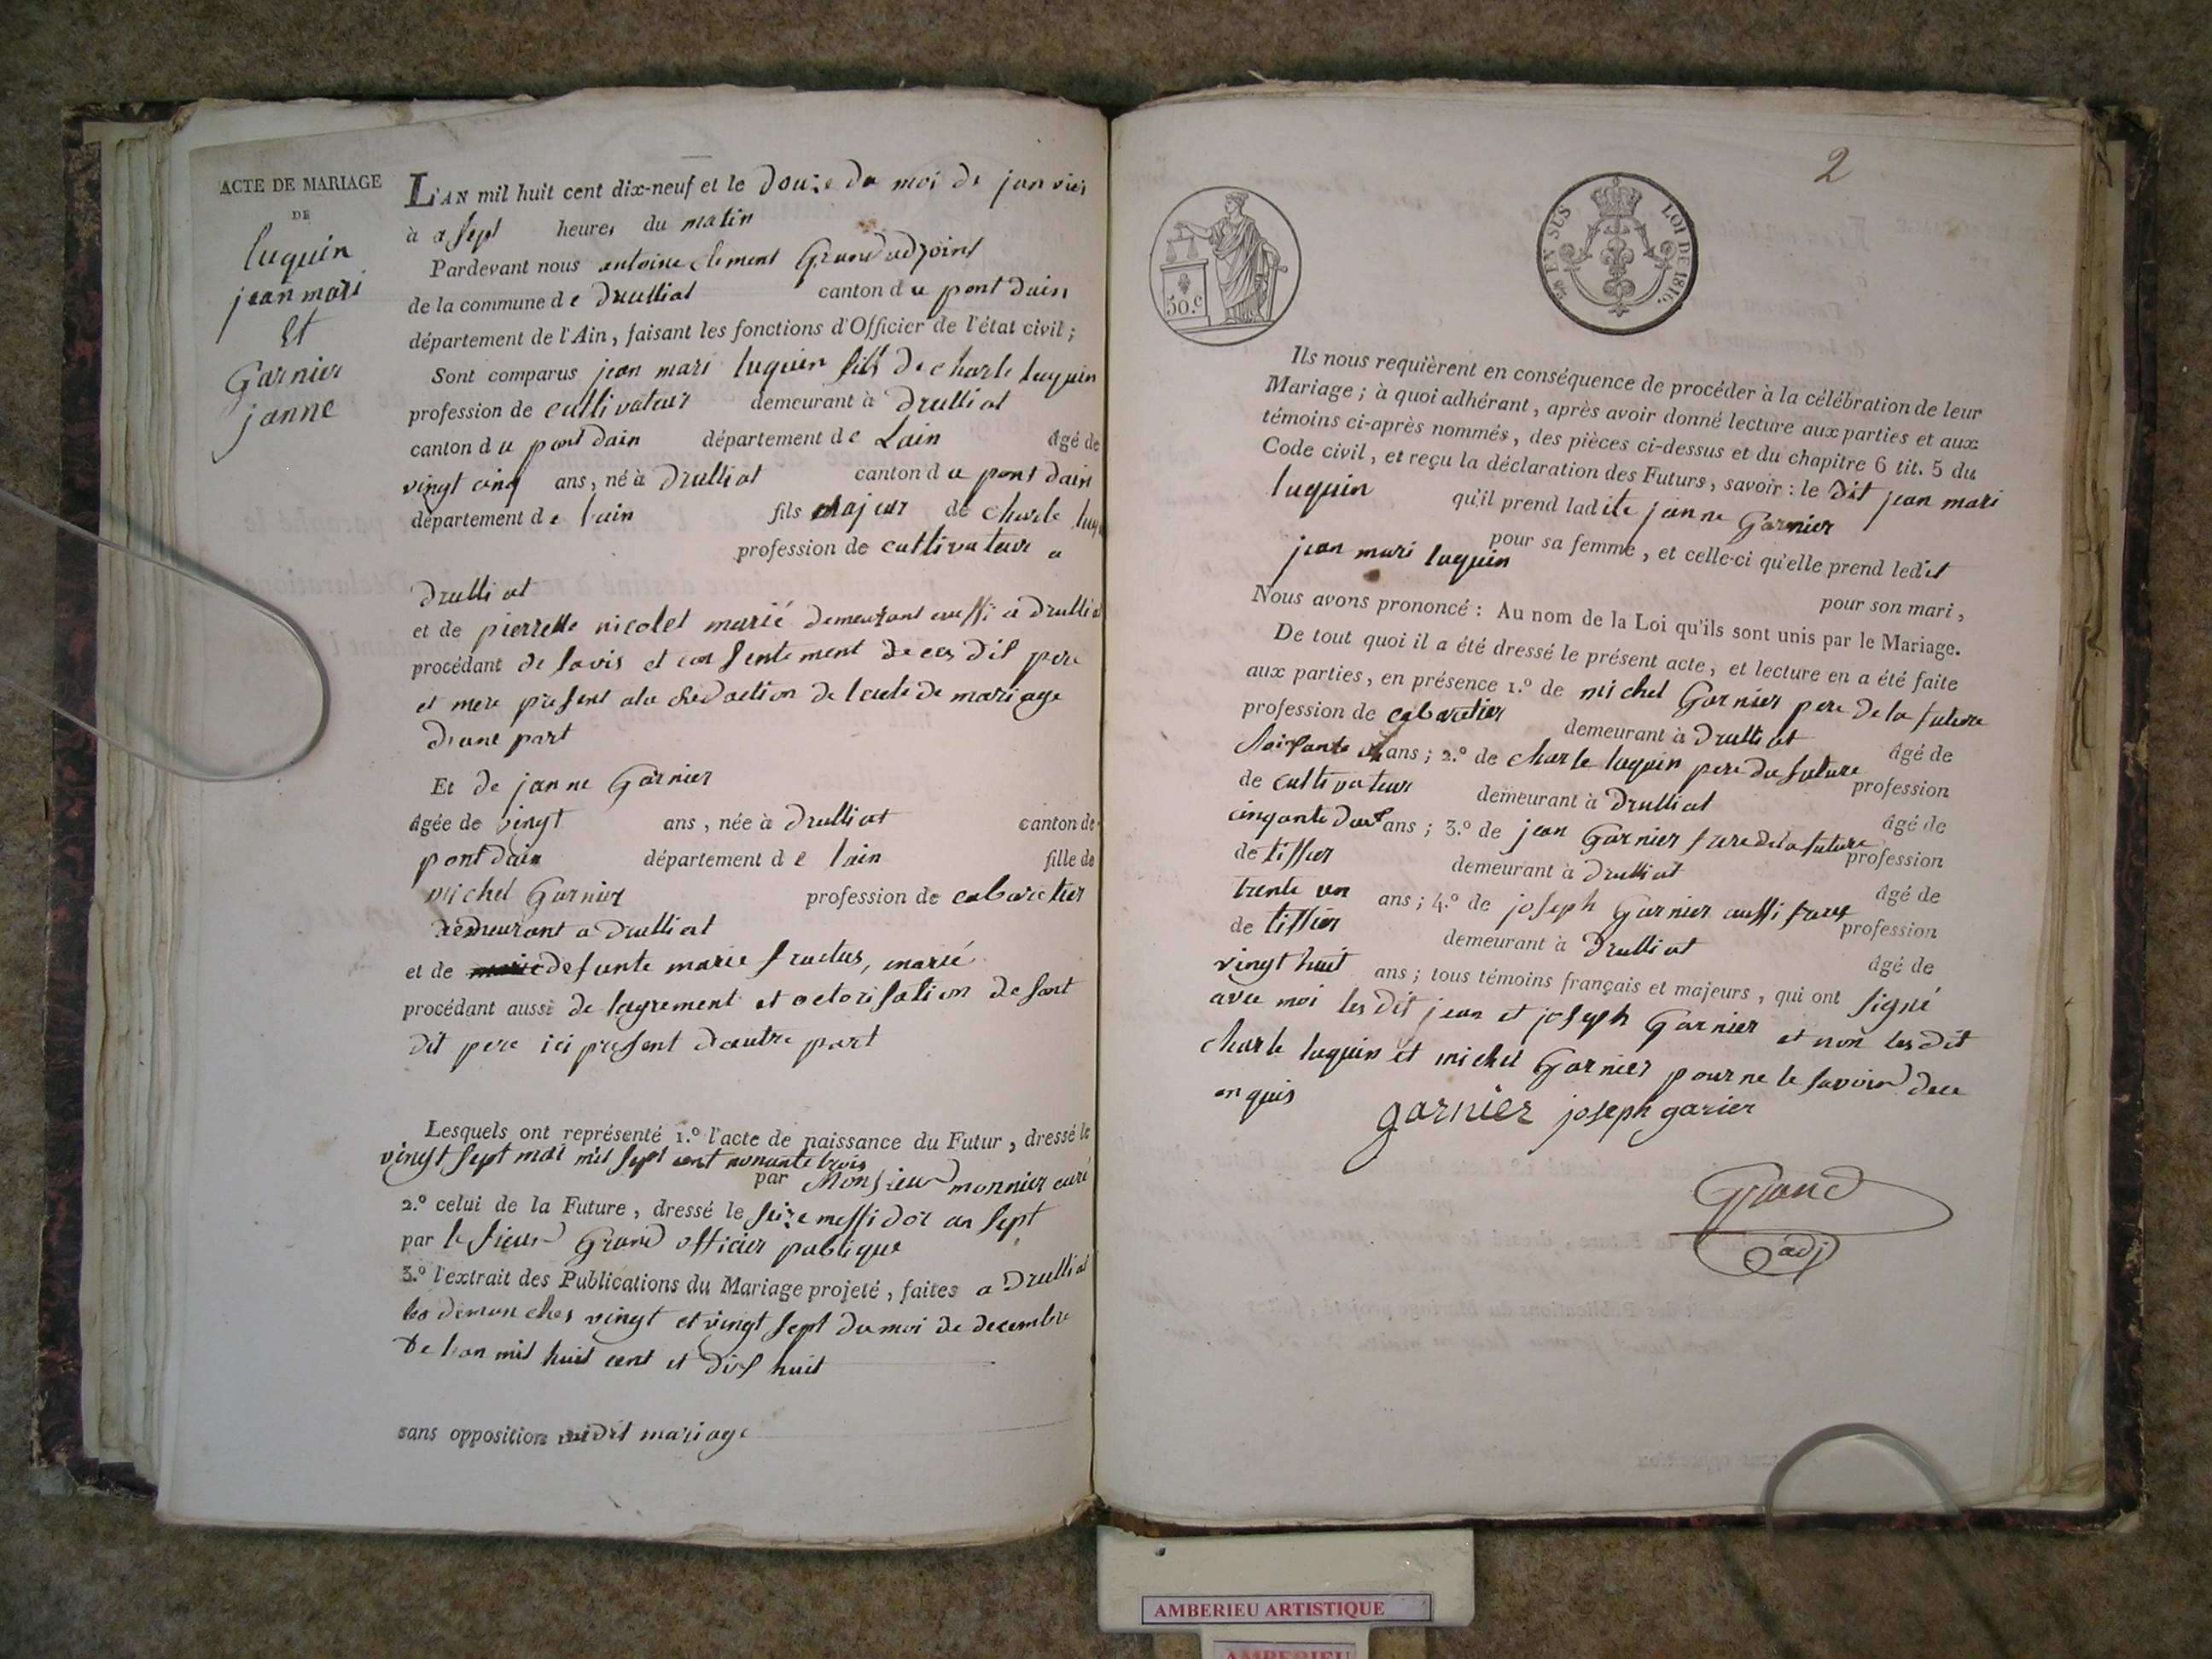 ACTE DE MARIAGE
DE
luquin
jean mari
et
Garnier
janne
L'AN mil huit cent dix-neuf et le douze du moi de janvier
à sept heures du matin
Pardevant nous antoine clement Grand adjoint
de la commune de Druilliat canton du pont dain
département de l'Ain, faisant les fonctions d'Officier de l'état civil;
Sont comparus jean mari luquin fils de charle luquin
profession de cultivateur demeurant à Druilliat
canton du pont dain département de Lain âgé de
vingt cinq ans, né à Druilliat canton du pont dain
département de lain fils majeur de charle luq
profession de cultivateur a
druilliat
et de pierrette nicolet marié demeurant aussi a druillia
procédant de lavis et consentement de ces dit pere
et mere present ala redaction de lacte de mariage
dune part
Et de janne Garnier
âgée de vingt ans, née à druilliat canton de
pont dain département de lain fille de
michel Garnier profession de cabaretier
demeurant a druilliat
et de defunte marie fructus, marié
procédant aussi de lagrement et octorisation de sont
dit pere ici present dautre part
Lesquels ont représenté 1.º l'acte de naissance du Futur, dressé le
vingt sept mai mil sept cent nonante trois
par Monsieur monnier curé
2.º celui de la Future, dressé le seize messidor an sept
par le sieur Grand officier publique
3.º l'extrait des Publications du Mariage projeté, faites a Druilliat
les dimanches vingt et vingt sept du moi de decembre
De lan mil huit cent et dix huit
sans opposition audit mariage
2
50.c
EN SUS
LOI DE 1816.
Ils nous requièrent en conséquence de procéder à la célébration de leur
Mariage; à quoi adhérant, après avoir donné lecture aux parties et aux
témoins ci-après nommés, des pièces ci-dessus et du chapitre 6 tit. 5 du
Code civil, et reçu la déclaration des Futurs, savoir: le dit jean mari
luquin qu'il prend ladite janne Garnier
pour sa femme, et celle-ci qu'elle prend ledit
jean mari luquin pour son mari,
Nous avons prononcé: Au nom de la Loi qu'ils sont unis par le Mariage.
De tout quoi il a été dressé le présent acte, et lecture en a été faite
aux parties, en présence 1.º de michel Garnier pere de la future
profession de cabaretier demeurant à Druilliat âgé de
soisante ans; 2.º de charle luquin pere du future profession
de cultivateur demeurant à Druilliat âgé de
cinqante ans; 3.º de jean Garnier frere de la future profession
de tissier demeurant à Druilliat âgé de
trente un ans; 4.º de joseph Garnier aussi frere profession
de tissier demeurant à Druilliat âgé de
vingt huit ans; tous témoins français et majeurs, qui ont signé
avec moi les dit jean et joseph Garnier et non les dit
charle luquin et michel Garnier pour ne le savoir dece
enquis
garnier joseph garier
Grand
adj
AMBERIEU ARTISTIQUE
AMBERIEU